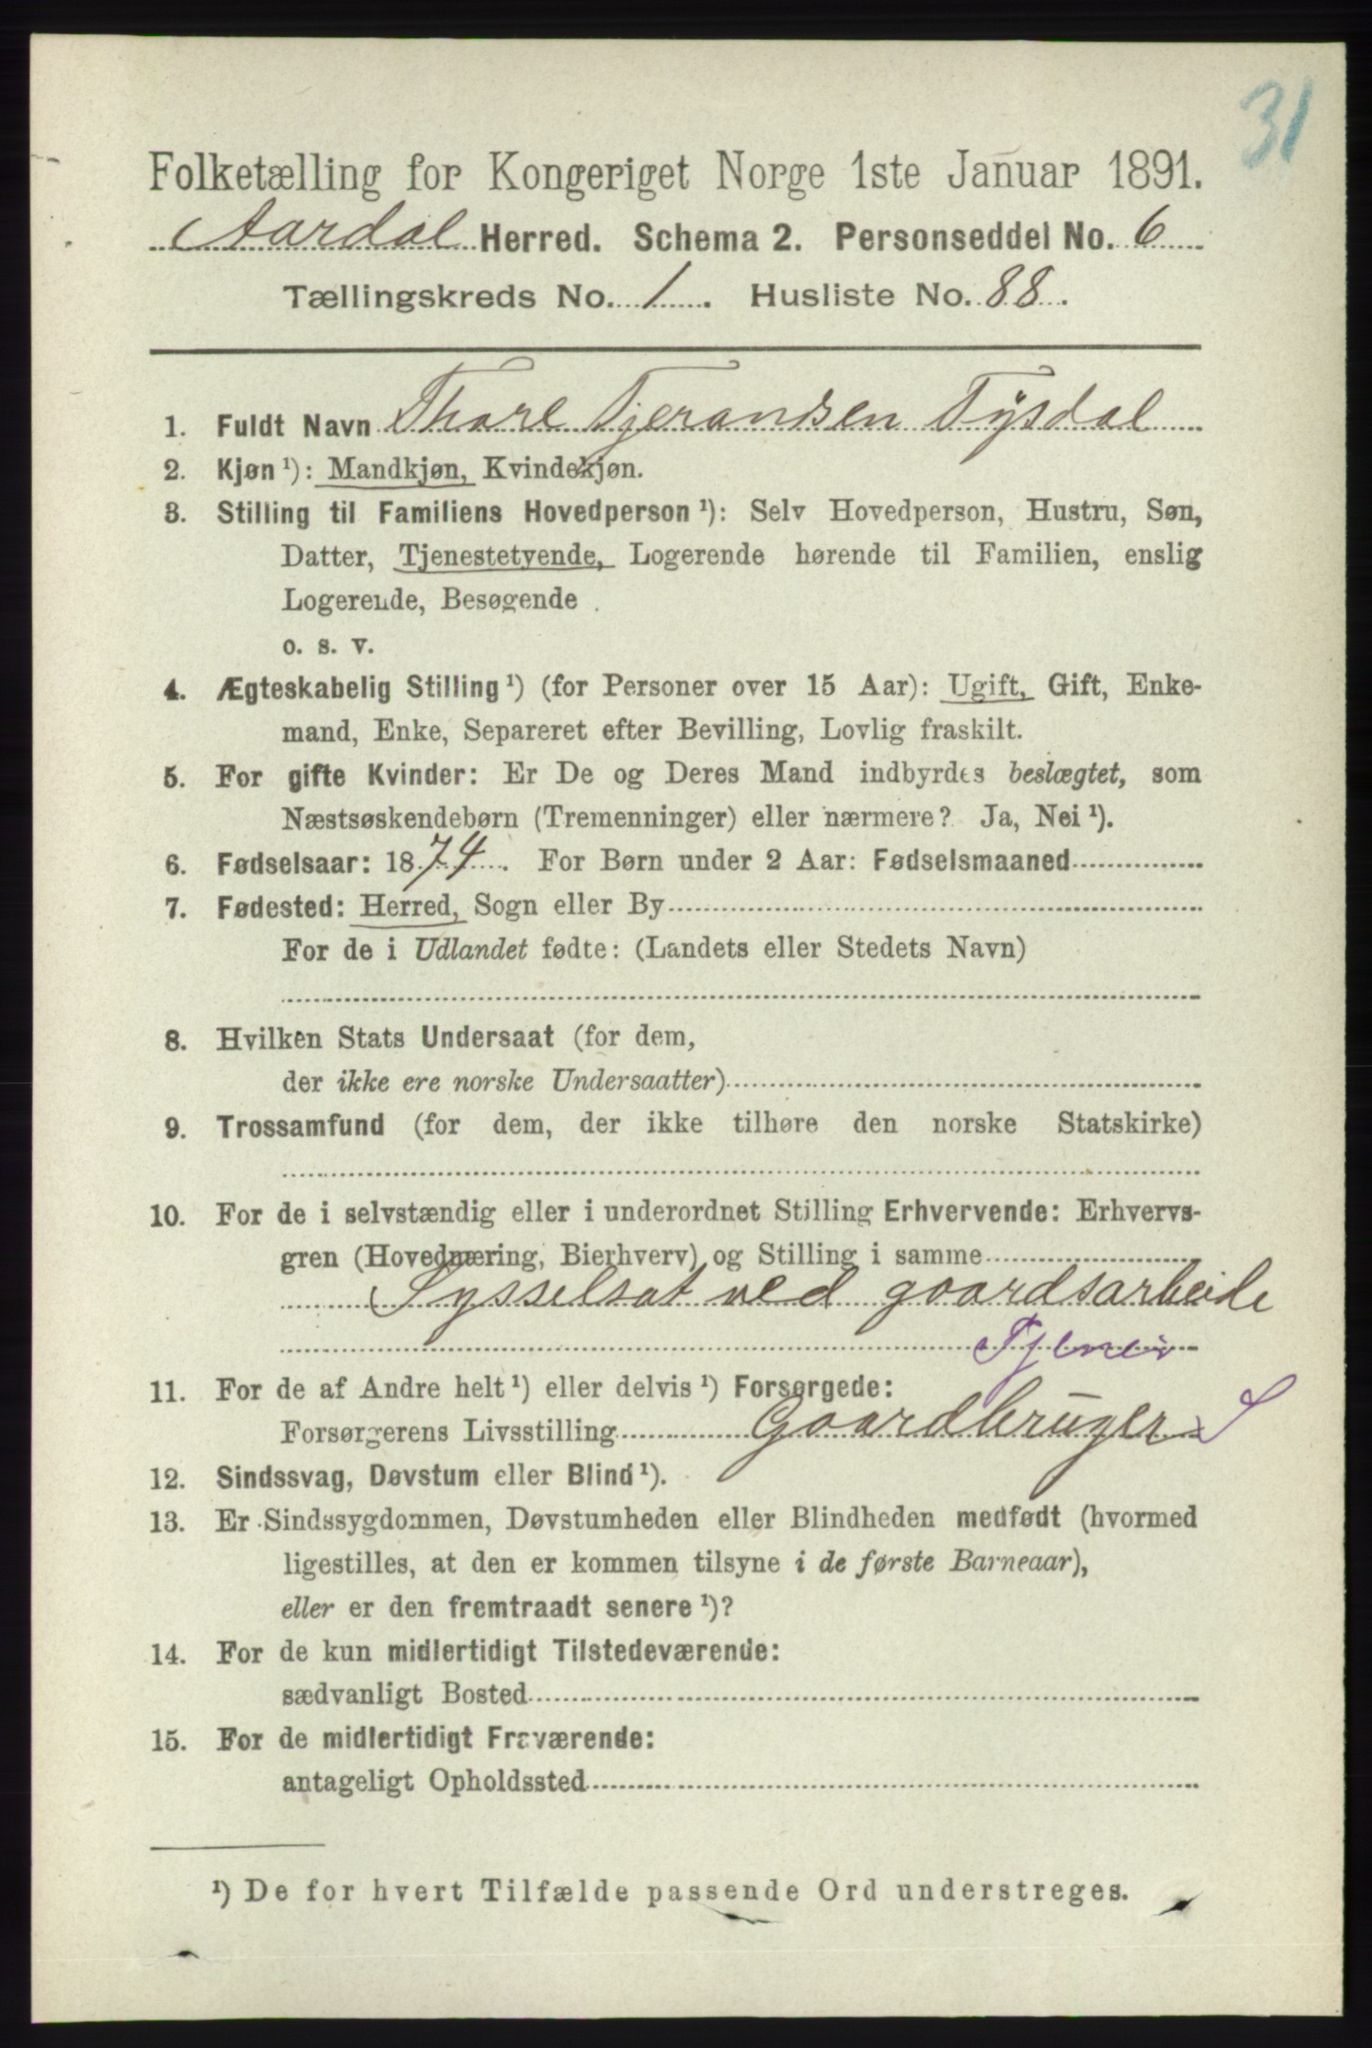 31
Folketælling for Kongeriget Norge 1ste Januar 1891.
Aardal Herred. Schema 2. Personseddel No. 6
Tællingskreds No. 1. Husliste No. 88.
1. Fuldt Navn Thore Tjerandsen Tysdal
2. Kjøn ¹): Mandkjøn, Kvindekjøn.
3. Stilling til Familiens Hovedperson ¹): Selv Hovedperson, Hustru, Søn,
Datter, Tjenestetyende, Logerende hørende til Familien, enslig
Logerende, Besøgende
o. s. v.
4. Ægteskabelig Stilling ¹) (for Personer over 15 Aar): Ugift, Gift, Enke-
mand, Enke, Separeret efter Bevilling, Lovlig fraskilt.
5. For gifte Kvinder: Er De og Deres Mand indbyrdes beslægtet, som
Næstsøskendebørn (Tremenninger) eller nærmere? Ja, Nei ¹).
6. Fødselsaar: 1874. For Børn under 2 Aar: Fødselsmaaned
7. Fødested: Herred, Sogn eller By
For de i Udlandet fødte: (Landets eller Stedets Navn)
8. Hvilken Stats Undersaat (for dem,
der ikke ere norske Undersaatter)
9. Trossamfund (for dem, der ikke tilhøre den norske Statskirke)
10. For de i selvstændig eller i underordnet Stilling Erhvervende: Erhvervs-
gren (Hovednæring, Bierhverv) og Stilling i samme
Sysselsat ved gaardsarbeide
Tjener
11. For de af Andre helt ¹) eller delvis ¹) Forsørgede:
Forsørgerens Livsstilling Gaardbruger S
12. Sindssvag, Døvstum eller Blind ¹).
13. Er Sindssygdommen, Døvstumheden eller Blindheden medfødt (hvormed
ligestilles, at den er kommen tilsyne i de første Barneaar),
eller er den fremtraadt senere ¹)?
14. For de kun midlertidigt Tilstedeværende:
sædvanligt Bosted
15. For de midlertidigt Fraværende:
antageligt Opholdssted
¹) De for hvert Tilfælde passende Ord understreges.